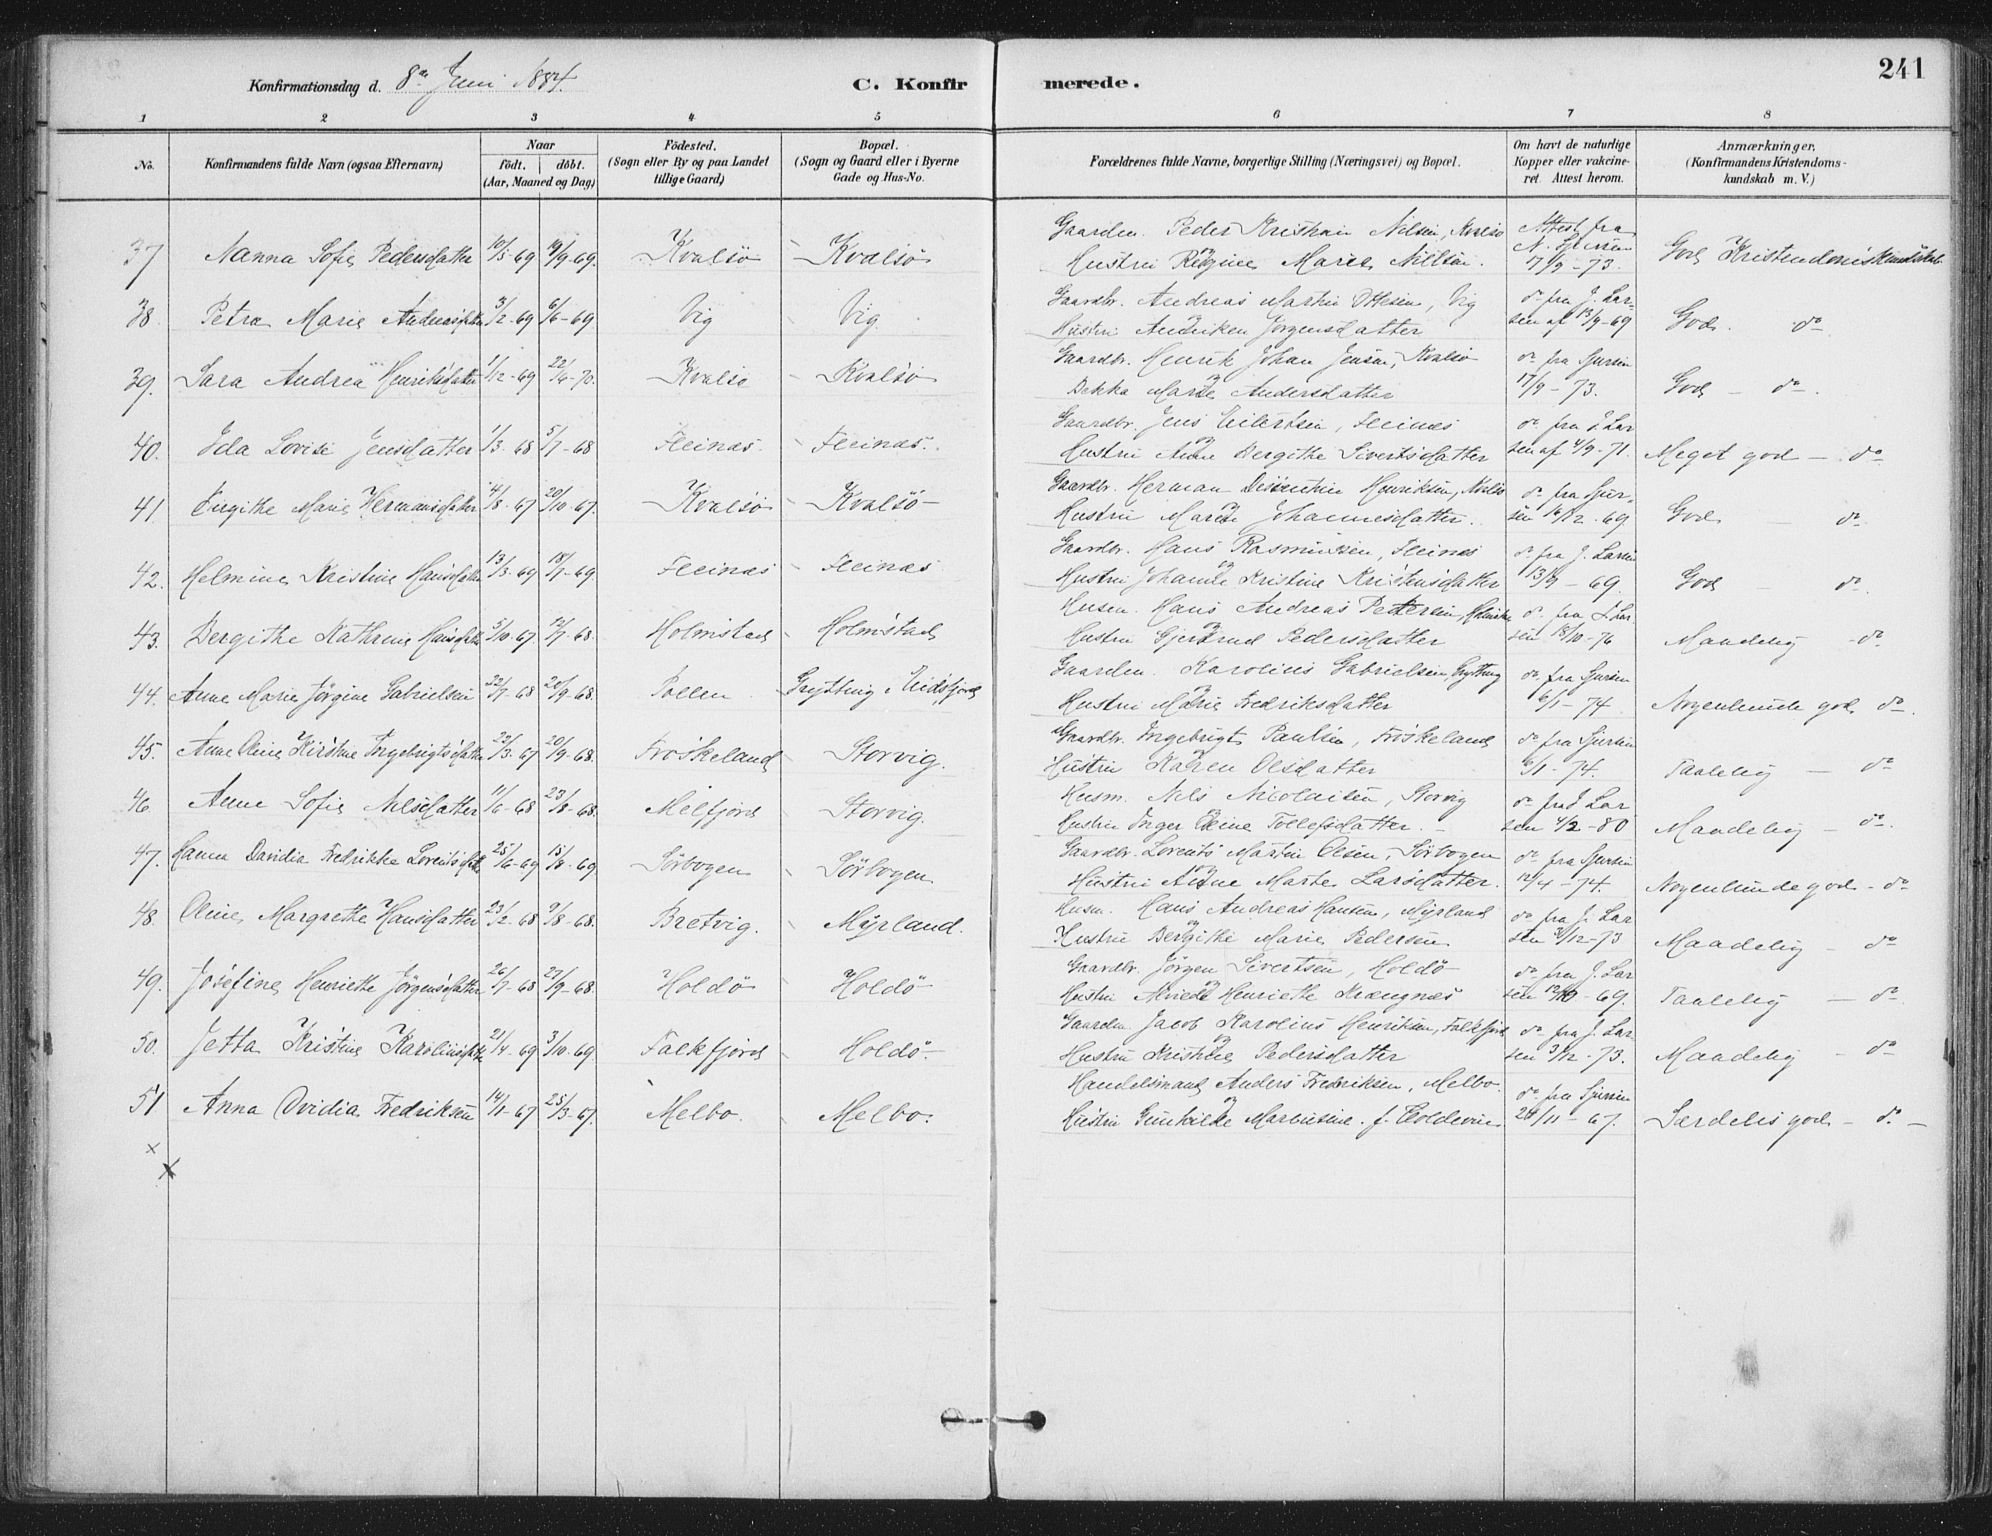 241
Konfirmationsdag d. 8de Juni 1884.
C. Konfirmerede.
1 2 3 4 5 6 7 8
No. Konfirmandens fulde Navn (ogsaa Efternavn) Naar født. døbt. (Aar, Maaned og Dag) Födested. (Sogn eller By og paa Landet tillige Gaard) Bopæl. (Sogn og Gaard eller i Byerne Gade og Hus-No. Forældrenes fulde Navne, borgerlige Stilling (Næringsvei) og Bopæl. Om havt de naturlige Kopper eller vakcineret. Attest herom. Anmærkninger, (Konfirmandens Kristendomskundskab m. V.)
37 Nanna Sofie Pedersdatter 10/5-69 19/9-69. Kvalsö Kvalsö Gaardm. Peder Kristian Nilsen, Kvalsö Attest fra
og Hustru Regine Marie Nilsen. N. Sjursen 17/9-73. God Kristendomskundskab
38 Petra Marie Andreasdatter 3/2-69 6/6-69 Vig Vig Gaardbr. Andreas Martin Ottesen, Vig do fra J. Lar-
og Hustru Andriken Jörgensdatter sen af 13/9-69 God. do
39. Sara Andrea Henriksdatter 1/12-69 22/6-70. Kvalsö Kvalsö Gaardbr. Henrik Johan Jensen, Kvalsö do fra Sjursen
og Marie Andersdatter 17/9-73. God - do.
40. Ida Lovise Jensdatter 1/3-68 5/7-68 Fleinæs. Fleinæs. Gaardbr. Jens Eilertsen, Fleinæs do fra J. Lar
og Hustru Anne Bergithe Sivertsdatter sen af 4/9-71. Meget god - do
41 Birgithe Marie Hermansdatter 4/8-67 20/10-67. Kvalsö Kvalsö Gaardbr. Herman Henriksen, Kvalsö do fra Sjur-
og Hustru Maren Johannesdatter. sen 16/12-69 God do.
42. Helmine Kristine Hansdatter 13/3-69 18/7-69. Fleinæs Fleinæs Gaardbr. Hans Rasmussen, Fleinæs do fra J. Larsen
og Hustru Johanne Kristine Kristensdatter 13/9-69. God - do.
43. Bergithe Kathrine Hansdatter 5/10-67. 12/7-68. Holmstad Holmstad Husm. Hans Andreas Pedersen, do fra J. Lar
og Hustru Gjertrud Pedersdatter sen 18/10-76 Maadelig - do.
44. Anne Marie Jörgine Gabrielsen 22/7-68 20/9-68. Pollen Grytting i Eidsfjord Gaardm. Karolius Gabrielsen, Grytting do fra Sjursen
og Hustru Marie Fredriksdatter 6/1-74 Nogenlunde god do.
45. Anne Oline Kirstine Ingebrigtsdatter 23/3-67 20/9-68. Fröskeland Storvig. Gaardbr. Ingebrigt Paulsen, Fröskeland do fra Sjursen
og Hustru Karen Olsdatter 6/1-74. Taalelig - do
46. Anne Sofie Nilsdatter 11/6-68 23/8-68. Melfjord Storvig. Husm. Nils Nicolaisen, Storvig do fra J. Lar
og Hustru Inger Oline Tollefsdatter. - sen 4/2-80 Maadelig - do.
47. Hanna Davidia Fredrikke Lorentsdatter 25/6-69 15/8-69. Sörbogen Sörbogen Gaardbr. Lorents Martin Olsen, Sörbogen do fra Sjursen
og Hustru Anne Marte Larsdatter. 12/4-74. Nogenlunde god - do
48. Oline Margrethe Hansdatter 23/2-68 9/8-68. Bretvig. Myrland. Husm. Hans Andreas Hansen, Myrland do fra J. Lar
og Hustru Bergithe Marie Pedersen sen /12-73 Maadelig - do
49. Josefine Henriette Jörgensdatter 26/7-68 27/9-68. Holdö Holdö Gaardbr. Jörgen Sivertsen, Holdö do fra J. Lar
og Hustru Henriette Krængnæs sen -69. Taalelig - do.
50. Jetta Kristine Karoliusdatter 21/4-69 3/10-69. Falkfjord Holdö. Gaardm. Jacob Karolius Henriksen, Falkfjord do fra J. Lar
og Hustru Kristine Pedersdatter sen 3/12-73. Maadelig - do
51 Anna Ovidia Fredriksen 14/1-67 25/3-67. Melbo. Melbo. Handelsmand Anders Fredriksen, Melbo. do fra Sjursen
og Hustru Gunhilde Marentine f. Coldevin 29/11-67. Særdeles god - do -
x
x